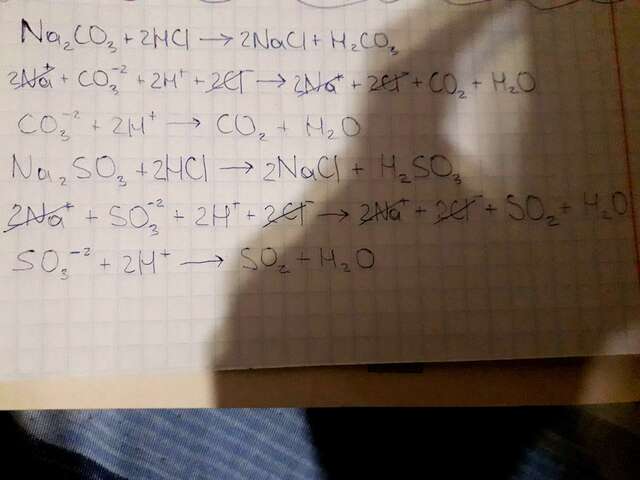 Na₂CO₃ + 2HCl → 2NaCl + H₂CO₃
2Na⁺ + CO₃⁻² + 2H⁺ + 2Cl⁻ → 2Na⁺ + 2Cl⁻ + CO₂ + H₂O
CO₃⁻² + 2H⁺ → CO₂ + H₂O
Na₂SO₃ + 2HCl → 2NaCl + H₂SO₃
2Na⁺ + SO₃⁻² + 2H⁺ + 2Cl⁻ → 2Na⁺ + 2Cl⁻ + SO₂ + H₂O
SO₃⁻² + 2H⁺ → SO₂ + H₂O